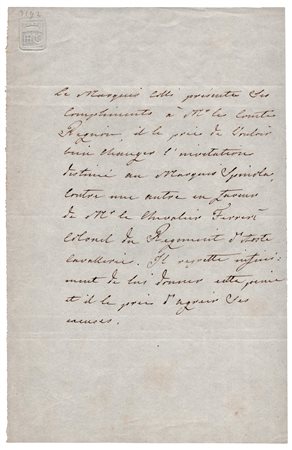 3192
Le Marquis Colli présente ses
Compliments à Mr. le Comte
il le prie de Vouloir
bien changer l'invitation
destinée au Marquis Spinola,
Contre une autre en faveur
de Mr. le Chevalier Ferrere
Colonel du Regiment d'Aoste
Cavallerie. Il regrette infini-
ment de lui donner cette peine
et il le prie d'agréer ses
excuses.